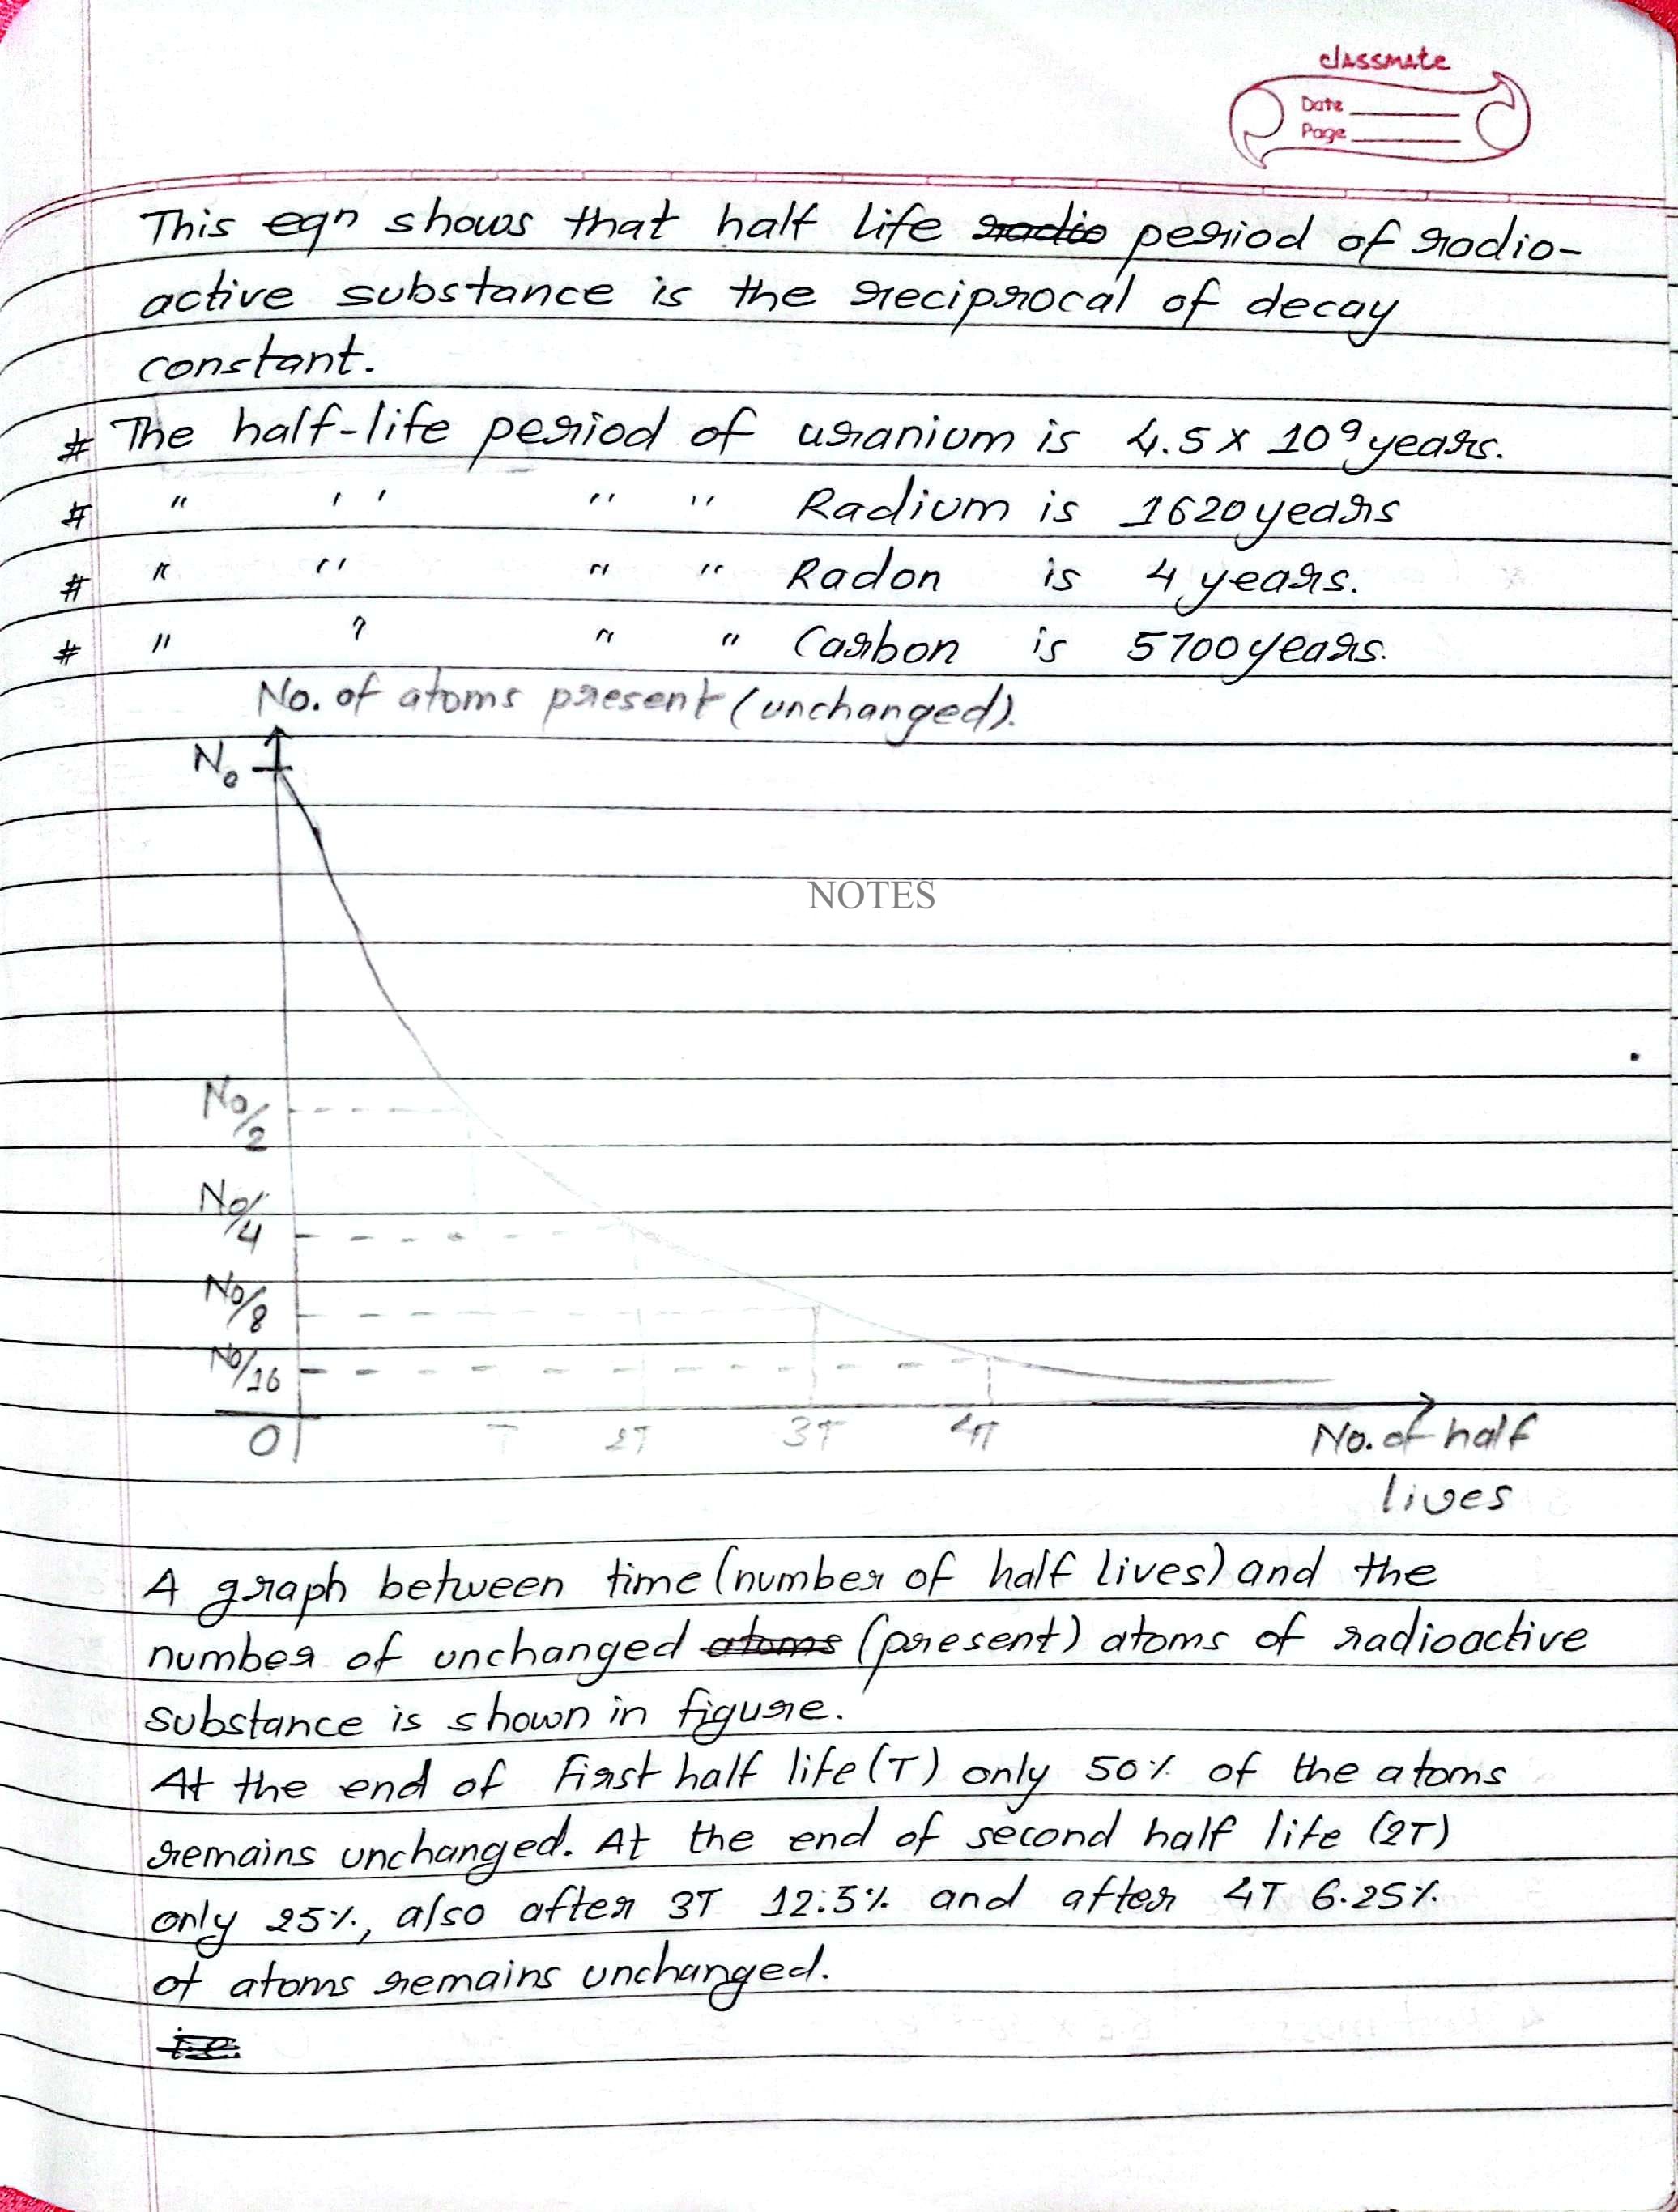 classmate
Date
Page
This eqn shows that half life radio period of radio-
active substance is the reciprocal of decay
constant.
# The half-life period of uranium is 4.5 x 10⁹ years.
# " " " " Radium is 1620 years
# " " " " Radon is 4 years.
# " " " " Carbon is 5700 years.
No. of atoms present (unchanged).
N₀
NOTES
N₀/2
N₀/4
N₀/8
N₀/16
O T 2T 3T 4T No. of half
lives
A graph between time (number of half lives) and the
number of unchanged atoms (present) atoms of radioactive
substance is shown in figure.
At the end of First half life (T) only 50% of the atoms
remains unchanged. At the end of second half life (2T)
only 25%, also after 3T 12.5% and after 4T 6.25%
of atoms remains unchanged.
i.e.